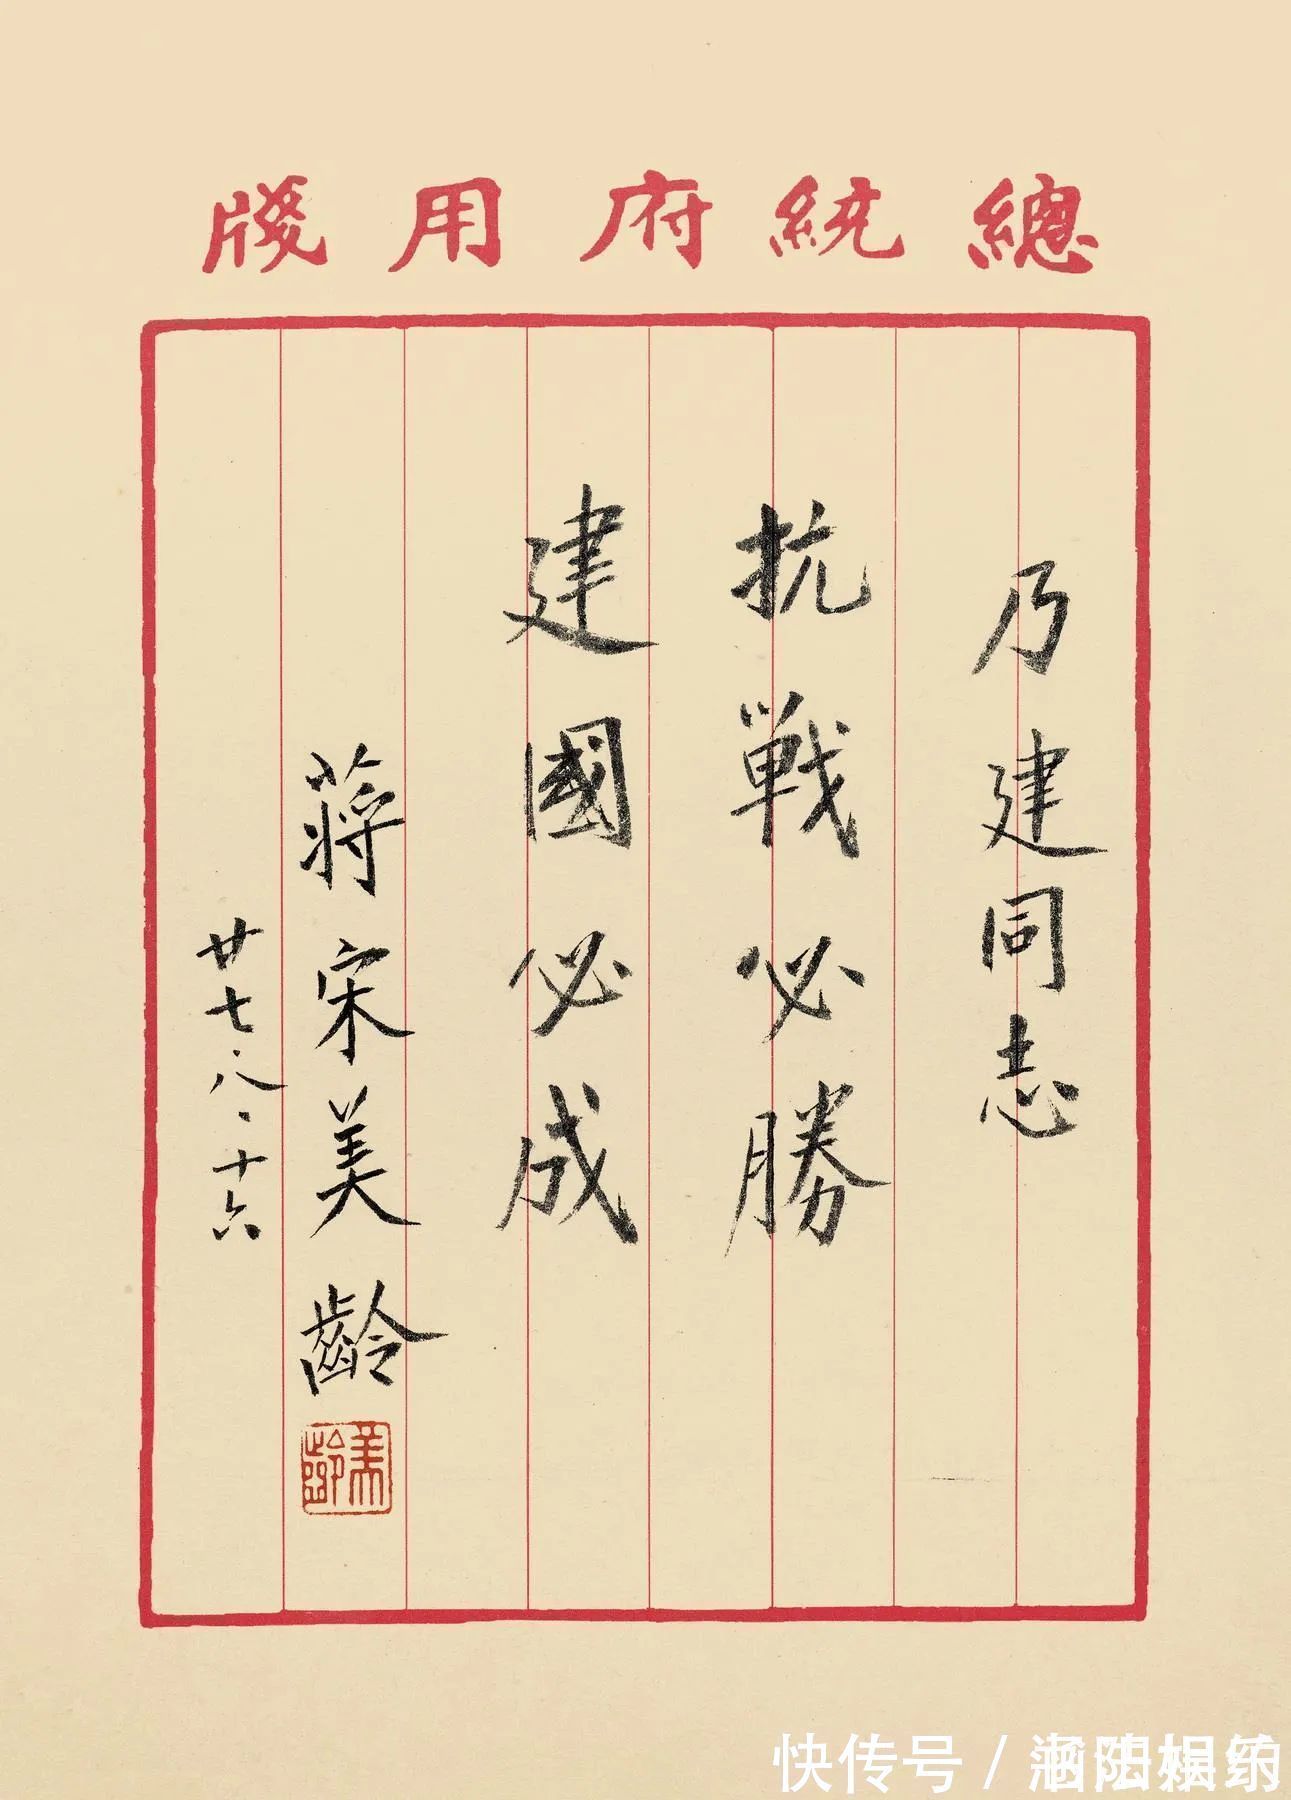 總統府用牋
乃建同志
抗戰必勝
建國必成
蔣宋美齡
廿七、八、十六
美齡
快传号/